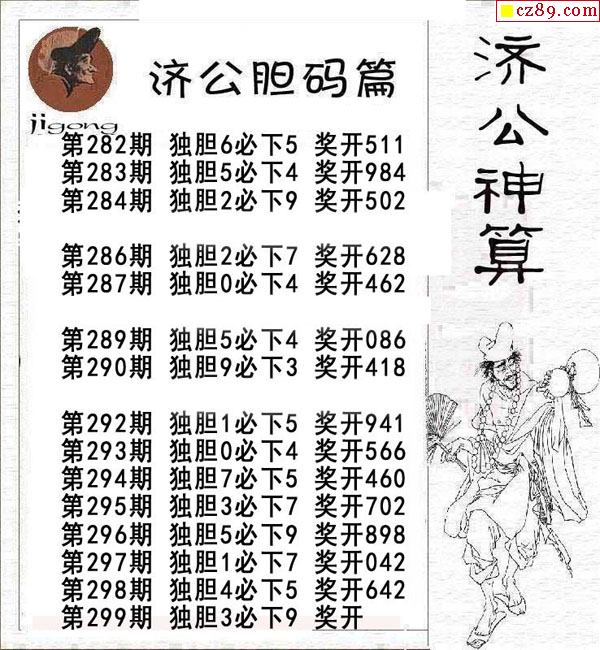 cz89.com
济公胆码篇
jigong
第282期 独胆6必下5 奖开511
第283期 独胆5必下4 奖开984
第284期 独胆2必下9 奖开502
第286期 独胆2必下7 奖开628
第287期 独胆0必下4 奖开462
第289期 独胆5必下4 奖开086
第290期 独胆9必下3 奖开418
第292期 独胆1必下5 奖开941
第293期 独胆0必下4 奖开566
第294期 独胆7必下5 奖开460
第295期 独胆3必下7 奖开702
第296期 独胆5必下9 奖开898
第297期 独胆1必下7 奖开042
第298期 独胆4必下5 奖开642
第299期 独胆3必下9 奖开
济公神算